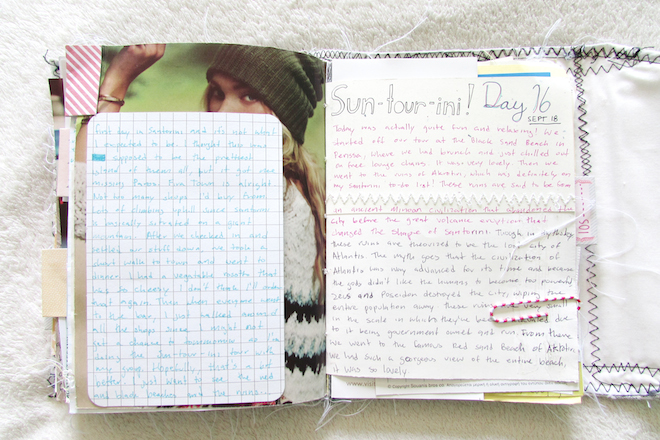 First day in Santorini and it's not what
I expected to be. I thought this was
supposed to be the prettiest
island of them all, but I got one
missing Paros. Town is alright.
Not too many shops I'd buy from.
lots of climbing uphill since Santorini
is basically situated on a
After we checked in and
settled stuff down, we took a
walk to town and went to
dinner. I had a vegetable risotto that
was so cheesy I don't think I'll order
that again. Then when everyone went
I walked around
the shops since I was not
tomorrow so I'm
taking the Sun-tour-ini tour with
my Hopefully, that's a lot
better. I just want to see the red
and black beaches and the ruins.
Sun-tour-ini! Day 16
SEPT 18
Today was actually quite fun and relaxing! We
started off our tour at the Black Sand Beach in
Perissa, where we had brunch and just chilled out
on free lounge chairs. It was very lovely. Then we
went to the ruins of Akrotiri, which was definitely on
my Santorini to-do list! These ruins are said to be from
an ancient Minoan civilisation that abandoned the
city before the great volcanic eruption that
changed the shape of Santorini. Though in mythology,
these ruins are theorized to be the lost city of
Atlantis. The myth goes that the civilization of
Atlantis was very advanced for its time and because
the gods didn't like the humans to become too powerful,
Zeus and Poseidon destroyed the city wiping the
entire population away. These ruins were very small
in the scale in which they've been due
to it being government owned and run. From there
we went to the famous Red Sand Beach of Akrotiri.
We had such a gorgeous view of the entire beach,
it was so lovely.